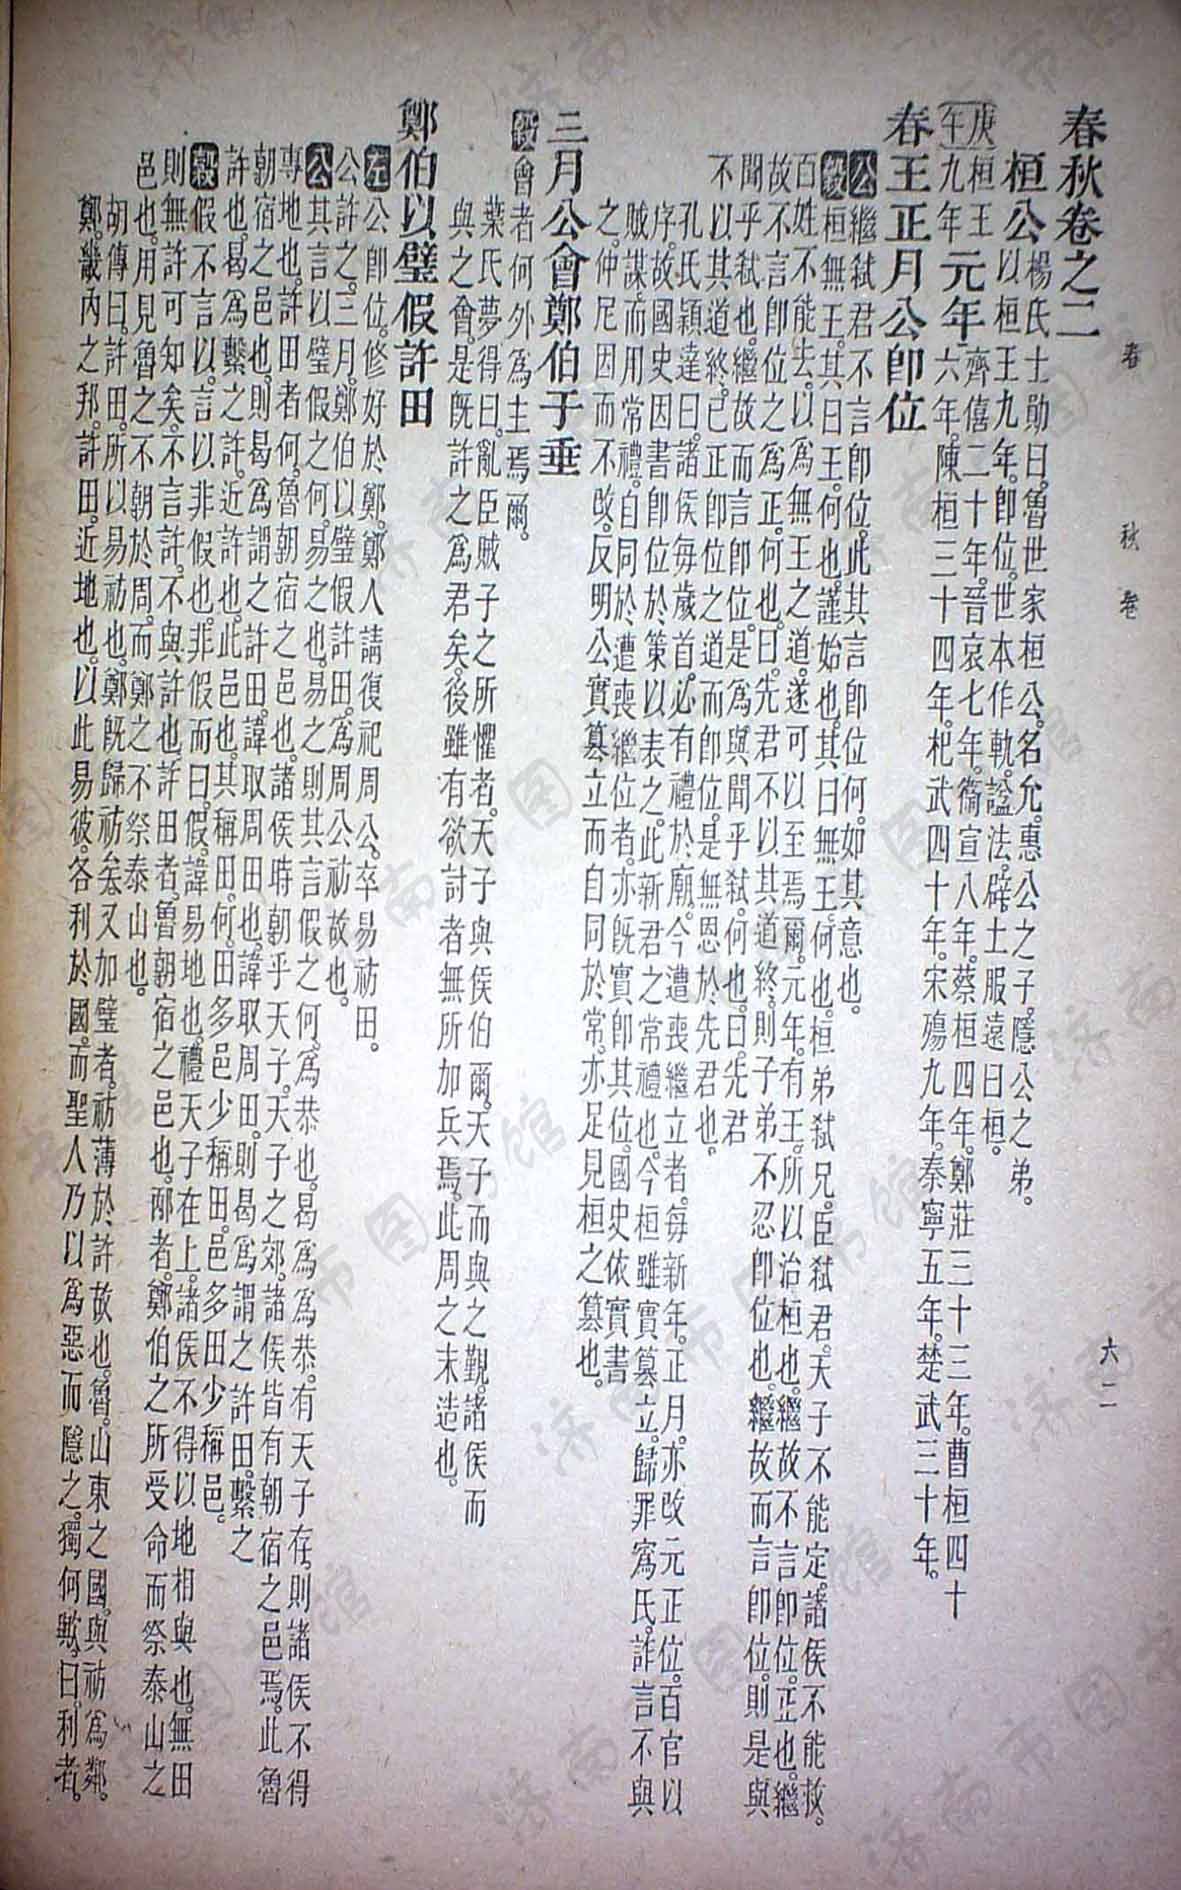 春秋卷
六一
春秋卷之二
桓公楊氏士勛曰。魯世家桓公。名允。惠公之子。隱公之弟。
以桓王九年。即位。世本作軌。諡法。辟土服遠曰桓。
庚午桓王九年元年齊僖二十年。晉哀七年。衞宣八年。蔡桓四年。鄭莊三十三年。曹桓四十
六年。陳桓三十四年。杞武四十年。宋殤九年。秦寧五年。楚武三十年。
春王正月公即位
公繼弒君不言即位。此其言即位何。如其意也。
穀桓無王。其曰王。何也。謹始也。其曰無王。何也。桓弟弒兄。臣弒君。天子不能定。諸侯不能救。
百姓不能去。以爲無王之道。遂可以至焉爾。元年。有王。所以治桓也。繼故不言即位。正也。繼
故不言即位之爲正。何也。曰。先君不以其道終。則子弟不忍即位也。繼故而言即位。則是與
聞乎弒也。繼故而言即位。是爲與聞乎弒。何也。曰。先君
不以其道終。已正即位之道而即位。是無恩於先君也。
孔氏穎達曰。諸侯每歲首。必有禮於廟。今遭喪繼立者。每新年。正月。亦改元正位。百官以
序。故國史因書即位於策以表之。此新君之常禮也。今桓雖實篡立。歸罪寪氏。詐言不與
賊謀。而用常禮。自同於遭喪繼位者。亦旣實即其位。國史依實書
之。仲尼因而不改。反明公實篡立而自同於常。亦足見桓之篡也。
三月公會鄭伯于垂
穀會者何外爲主焉爾。
葉氏夢得曰。亂臣賊子之所懼者。天子與侯伯爾。天子而與之觀。諸侯而
與之會。是旣許之爲君矣。後雖有欲討者無所加兵焉。此周之末造也。
鄭伯以璧假許田
左公即位。修好於鄭。鄭人請復祀周公。卒易祊田。
公許之。三月。鄭伯以璧假許田。爲周公祊故也。
公其言以璧假之何。易之也。易之則其言假之何。爲恭也。曷爲爲恭。有天子存。則諸侯不得
專地也。許田者何。魯朝宿之邑也。諸侯時朝乎天子。天子之郊。諸侯皆有朝宿之邑焉。此魯
朝宿之邑也。則曷爲謂之許田。諱取周田也。諱取周田。則曷爲謂之許田。繫之
許也。曷爲繫之許。近許也。此邑也。其稱田。何。田多邑少稱田。邑多田少稱邑。
穀假不言以。言以。非假也。非假而曰。假。諱易地也。禮天子在上。諸侯不得以地相與也。無田
則無許可知矣。不言許。不與許也。許田者。魯朝宿之邑也。邴者。鄭伯之所受命而祭泰山之
邑也。用見魯之不朝於周。而鄭之不祭泰山也。
胡傳曰。許田。所以易祊也。鄭旣歸祊矣。又加璧者。祊薄於許故也。魯。山東之國。與祊爲鄰。
鄭。畿內之邦。許田。近地也。以此易彼。各利於國。而聖人乃以爲惡而隱之。獨何歟。曰。利者。